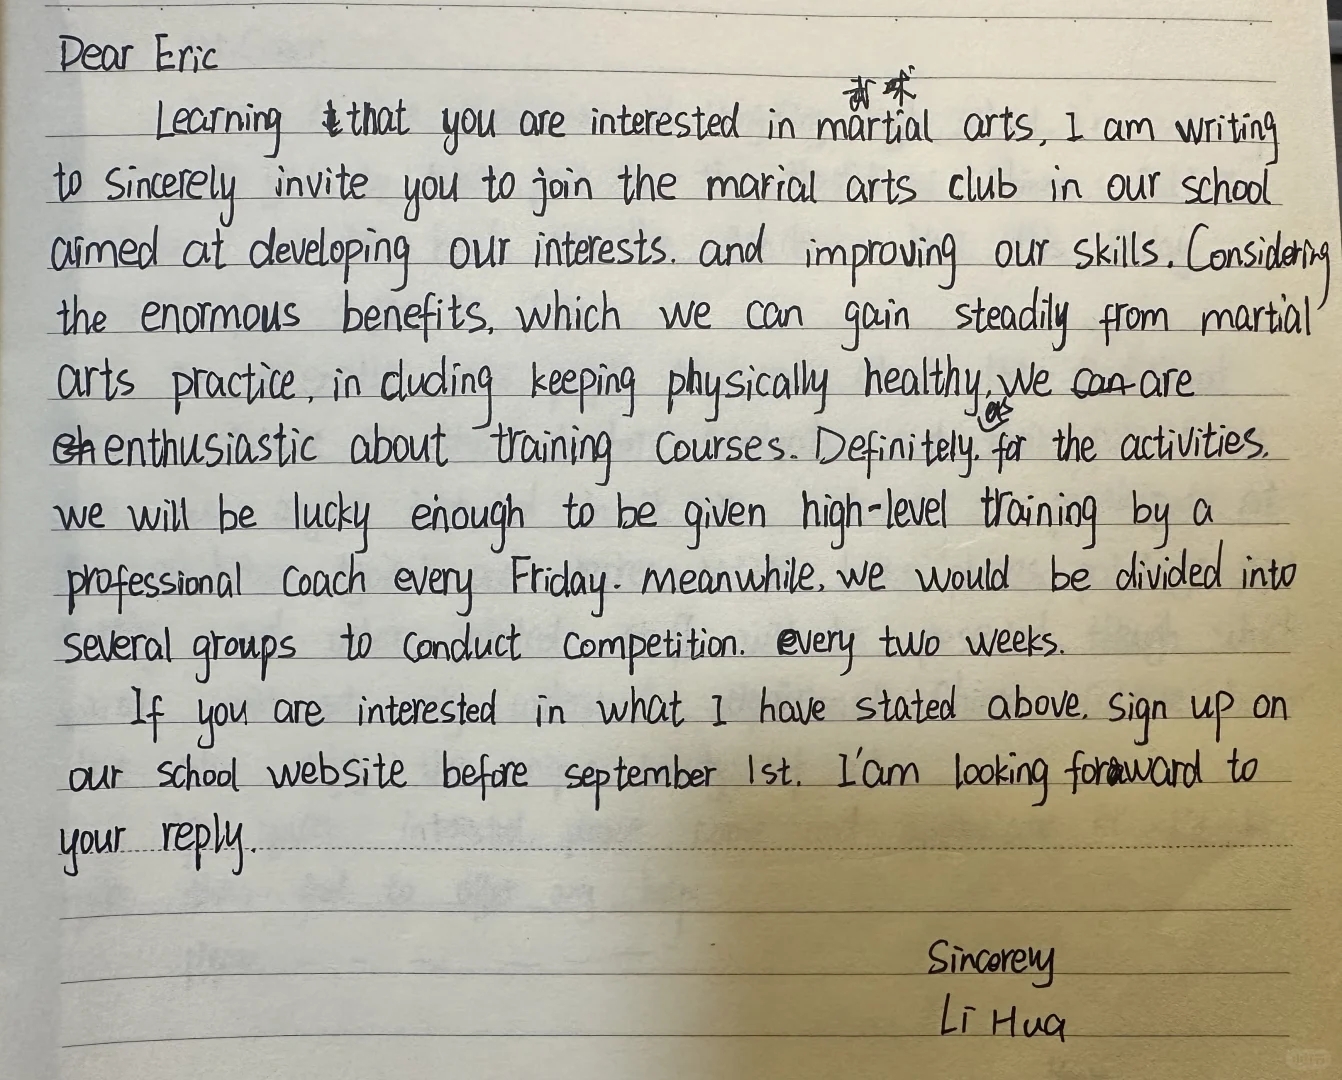 Dear Eric
武术
Learning that you are interested in martial arts, I am writing
to sincerely invite you to join the marial arts club in our school
aimed at developing our interests. and improving our skills. Considering
the enormous benefits, which we can gain steadily from martial
arts practice, in cluding keeping physically healthy, we can are
as
enthusiastic about training courses. Definitely, for the activities,
we will be lucky enough to be given high-level training by a
professional coach every Friday. meanwhile, we would be divided into
several groups to conduct competition. every two weeks.
If you are interested in what I have stated above, sign up on
our school website before september 1st. I'am looking forward to
your reply.
Sincerely
Li Hua